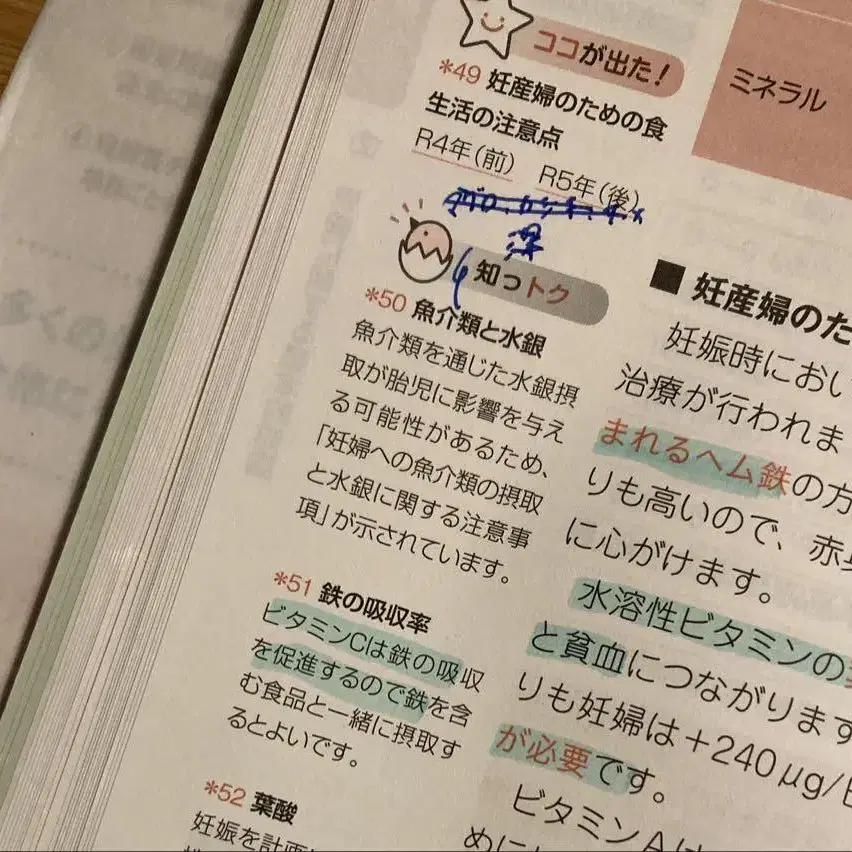 ココが出た！
*49 妊産婦のための食
生活の注意点
R4年（前） R5年（後）
知っトク
*50 魚介類と水銀
魚介類を通じた水銀摂
取が胎児に影響を与え
る可能性があるため、
「妊婦への魚介類の摂取
と水銀に関する注意事
項」が示されています。
*51 鉄の吸収率
ビタミンCは鉄の吸収
を促進するので鉄を含
む食品と一緒に摂取す
るとよいです。
*52 葉酸
妊娠を計画
ミネラル
■ 妊産婦のた
妊娠時におい
治療が行われま
まれるヘム鉄の方
りも高いので、赤身
に心がけます。
水溶性ビタミンの
と貧血につながります
りも妊婦は＋240μg/
が必要です。
ビタミンAは
めに